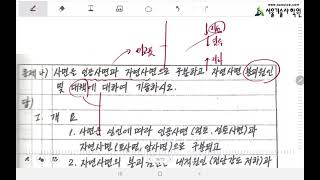 서울기술사학원
www.seoulpe.com
문제 4) 사면은 인공사면과 자연사면으로 구분되고 자연사면 붕괴원인
및 대책에 대하여 기술하시오.
답)
I. 개요
1. 사면은 성인에 따라 인공사면(절토, 성토사면)과
자연사면(토사면, 암사면)으로 구분되고
2. 자연사면의 붕괴 원인은 내적원인(전단강도 저하)과